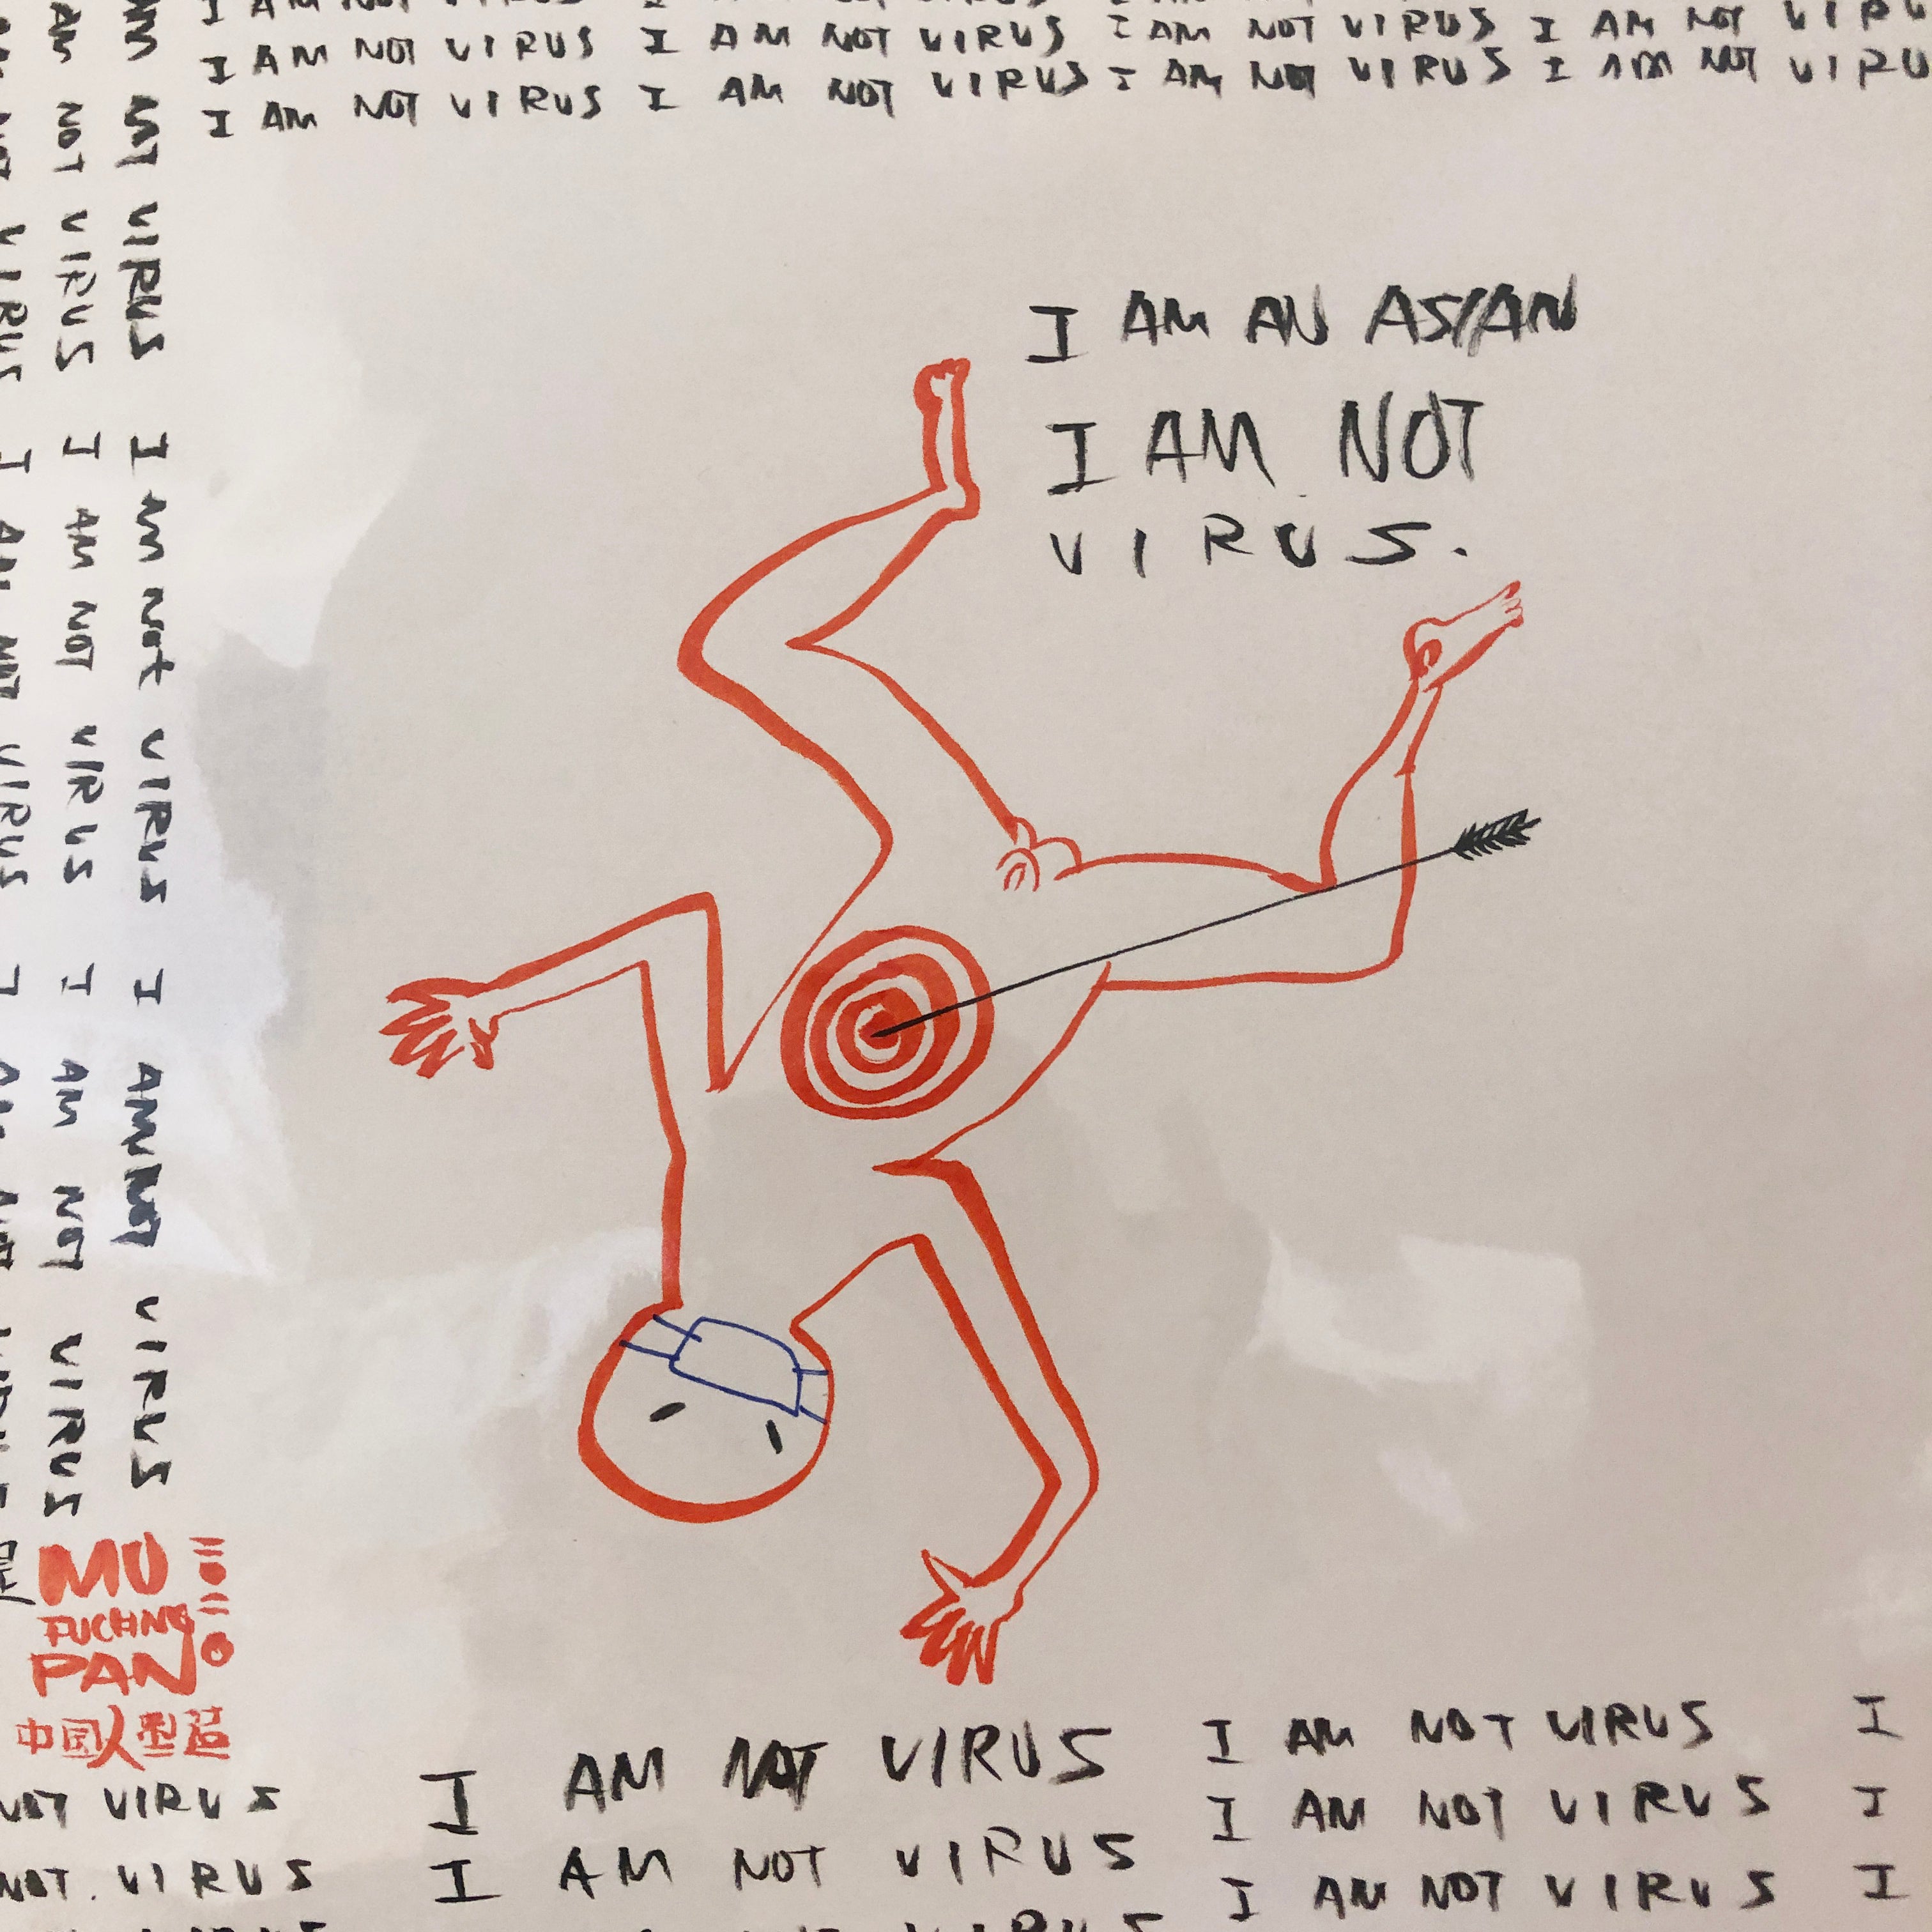 I AM NOT VIRUS I AM NOT VIRUS I AM NOT VIRUS I AM NOT VIRU
I AM NOT VIRUS I AM NOT VIRUS I AM NOT VIRUS I AM NOT VIRU
I AM AN ASIAN
I AM NOT
VIRUS.
AM NOT VIRUS I AM Not VIRUS I AM NOT VIRUS
AM NOT VIRUS I AM NOT VIRUS I AM NOT VIRUS
NOT VIRUS I AM NOT VIRUS I AM NOT
MU
FUCHNG
PAN
中国人型造
I AM NOT VIRUS I AM NOT VIRUS I
NOT VIRUS I AM NOT VIRUS I AM NOT VIRUS I
NOT. VIRUS I AM NOT VIRUS I